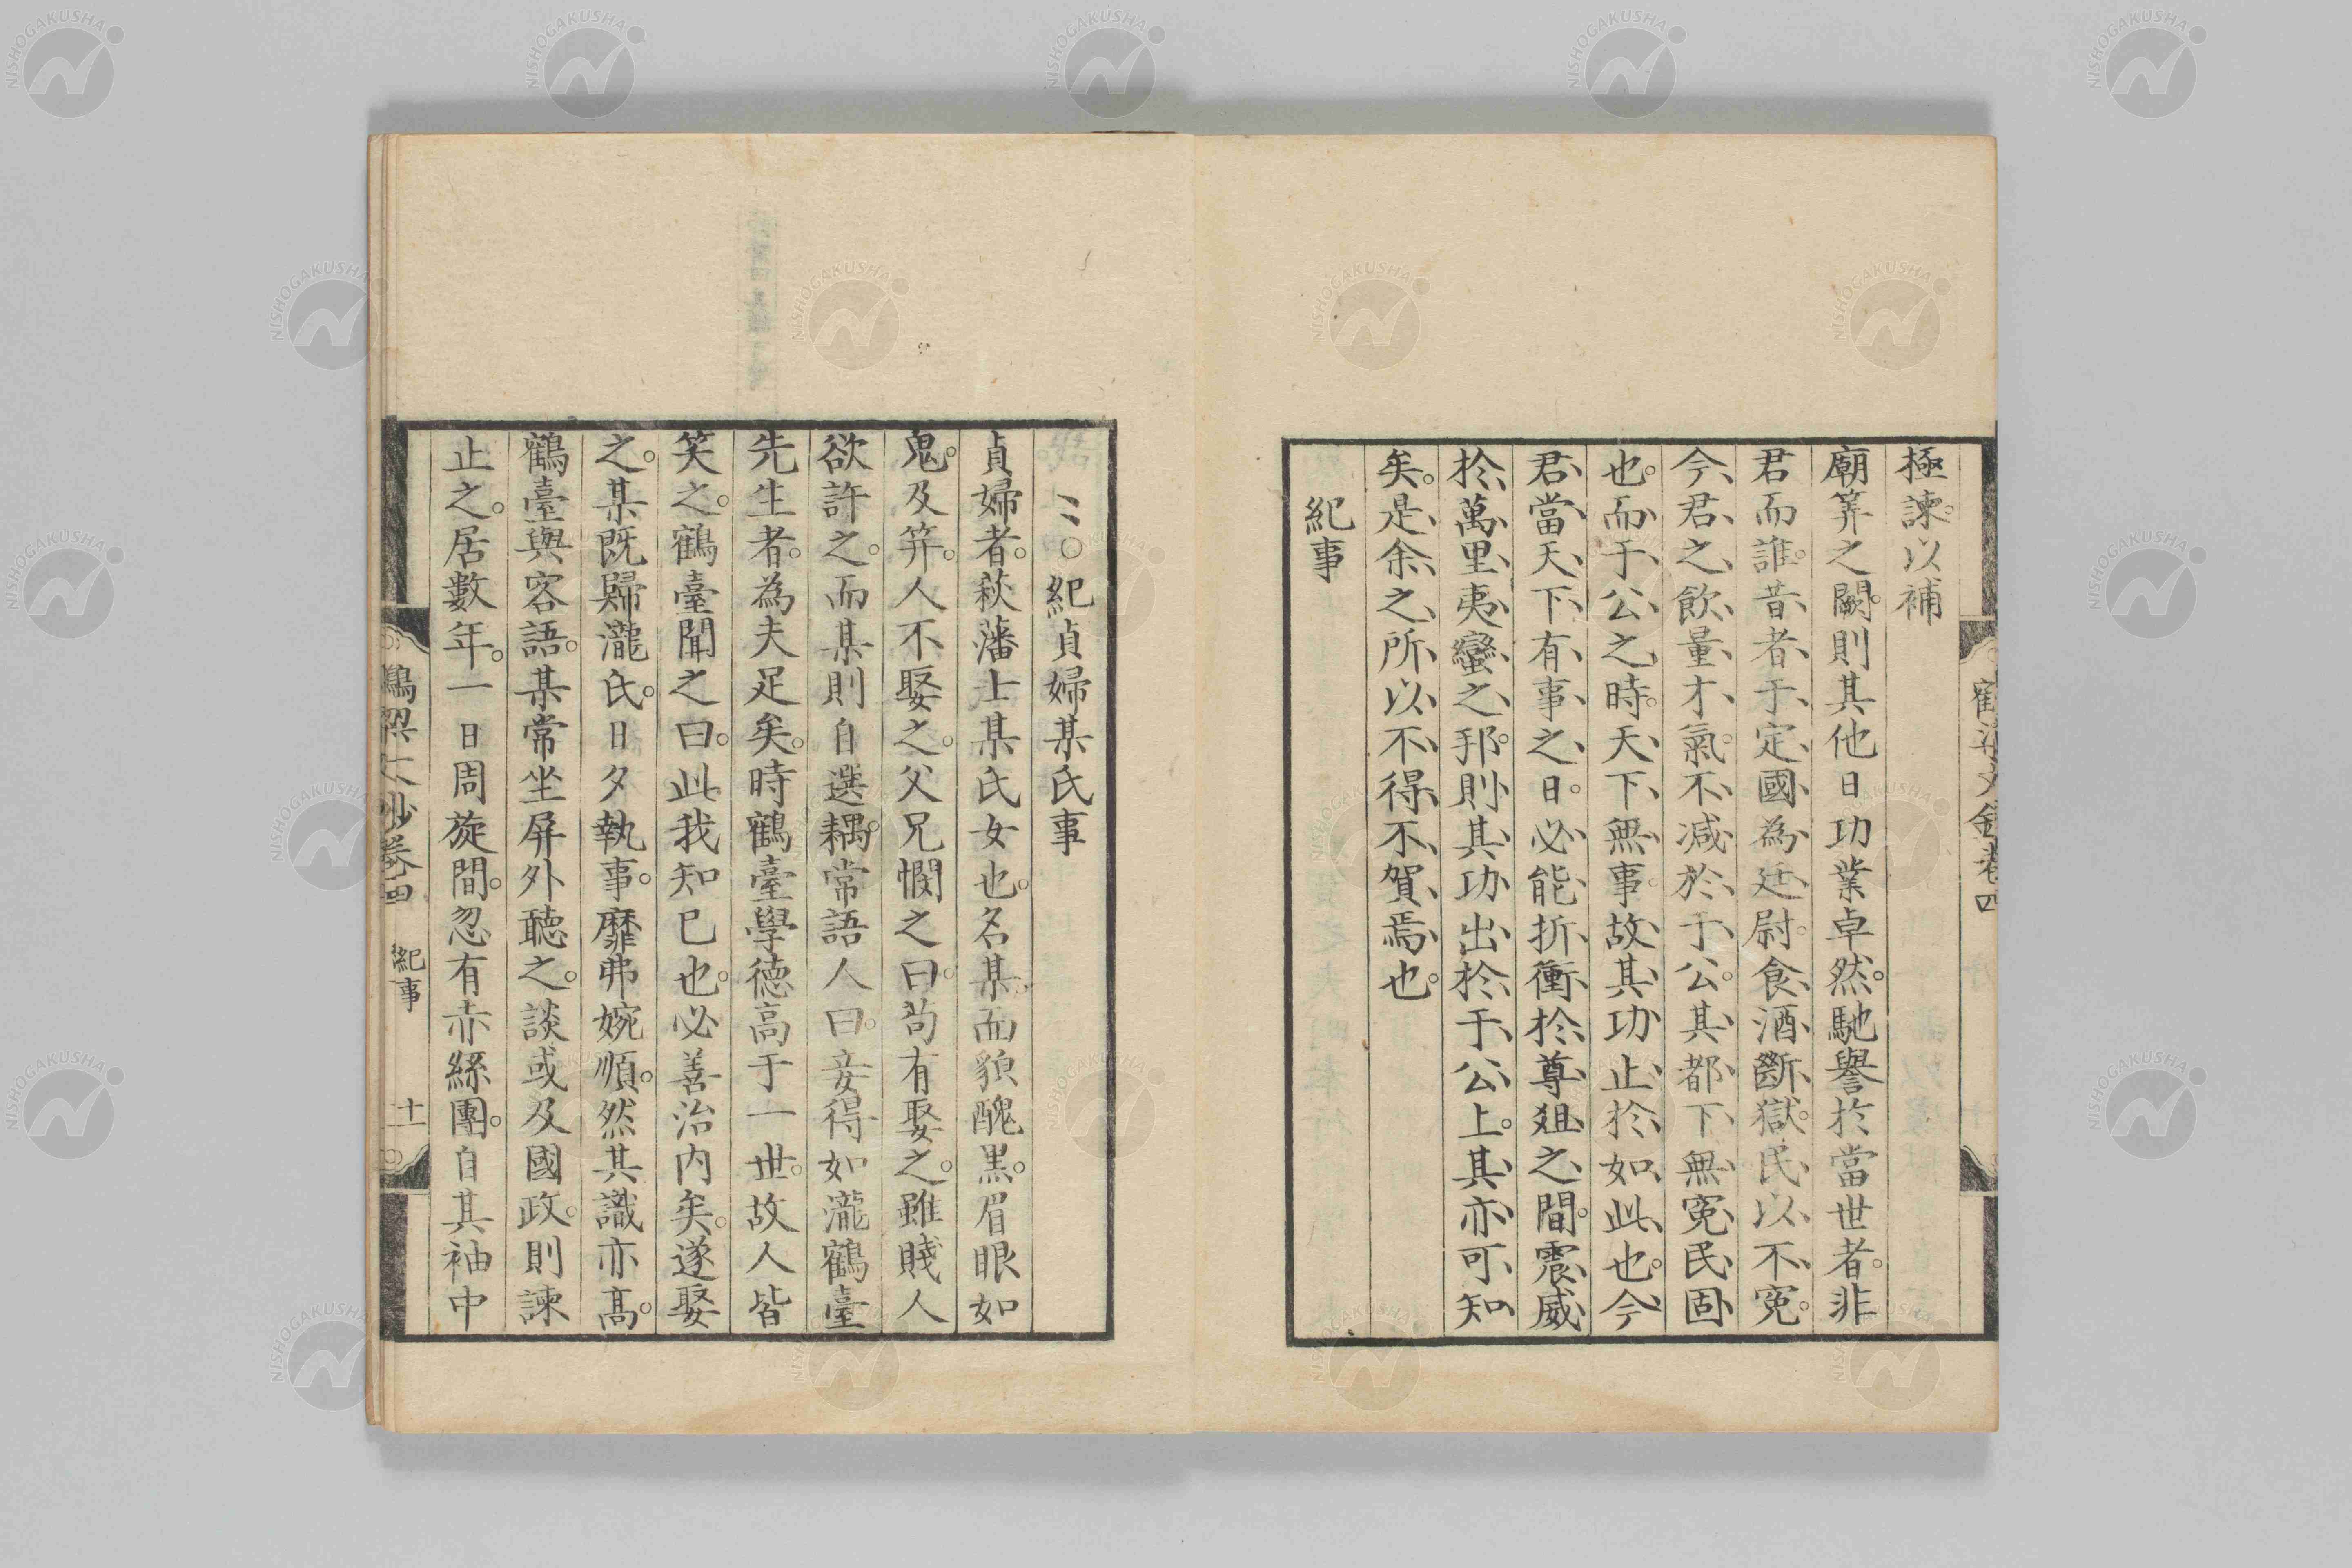 極諫。以補
廟筭之闕。則其他日功業卓然。馳譽於當世者。非
君而誰。昔者于定國為廷尉。食酒斷獄。民以不寃。
今君之飲量才氣。不减於于公。其都下無寃民固
也。而于公之時。天下無事。故其功止於如此也。今
君當天下有事之日。必能折衝於尊俎之間。震威
於萬里夷蠻之邦。則其功出於于公上。其亦可知
矣。是余之所以不得不賀焉也。
紀事
〻○紀貞婦某氏事
貞婦者。萩藩士某氏女也。名某。面貌醜黑。眉眼如
鬼。及筓。人不娶之。父兄憫之曰。苟有娶之。雖賤人
欲許之。而某則自選耦。常語人曰。妾得如瀧鶴臺
先生者。為夫足矣。時鶴臺學德高于一世。故人皆
笑之。鶴臺聞之曰。此我知已也。必善治内矣。遂娶
之。某既歸瀧氏。日夕執事。靡弗婉順。然其識亦高。
鶴臺與客語。某常坐屏外聽之。談或及國政。則諫
止之。居數年。一日周旋間。忽有赤絲團。自其袖中
鶴梁文鈔卷四 紀事 十一
NISHOGAKUSHA